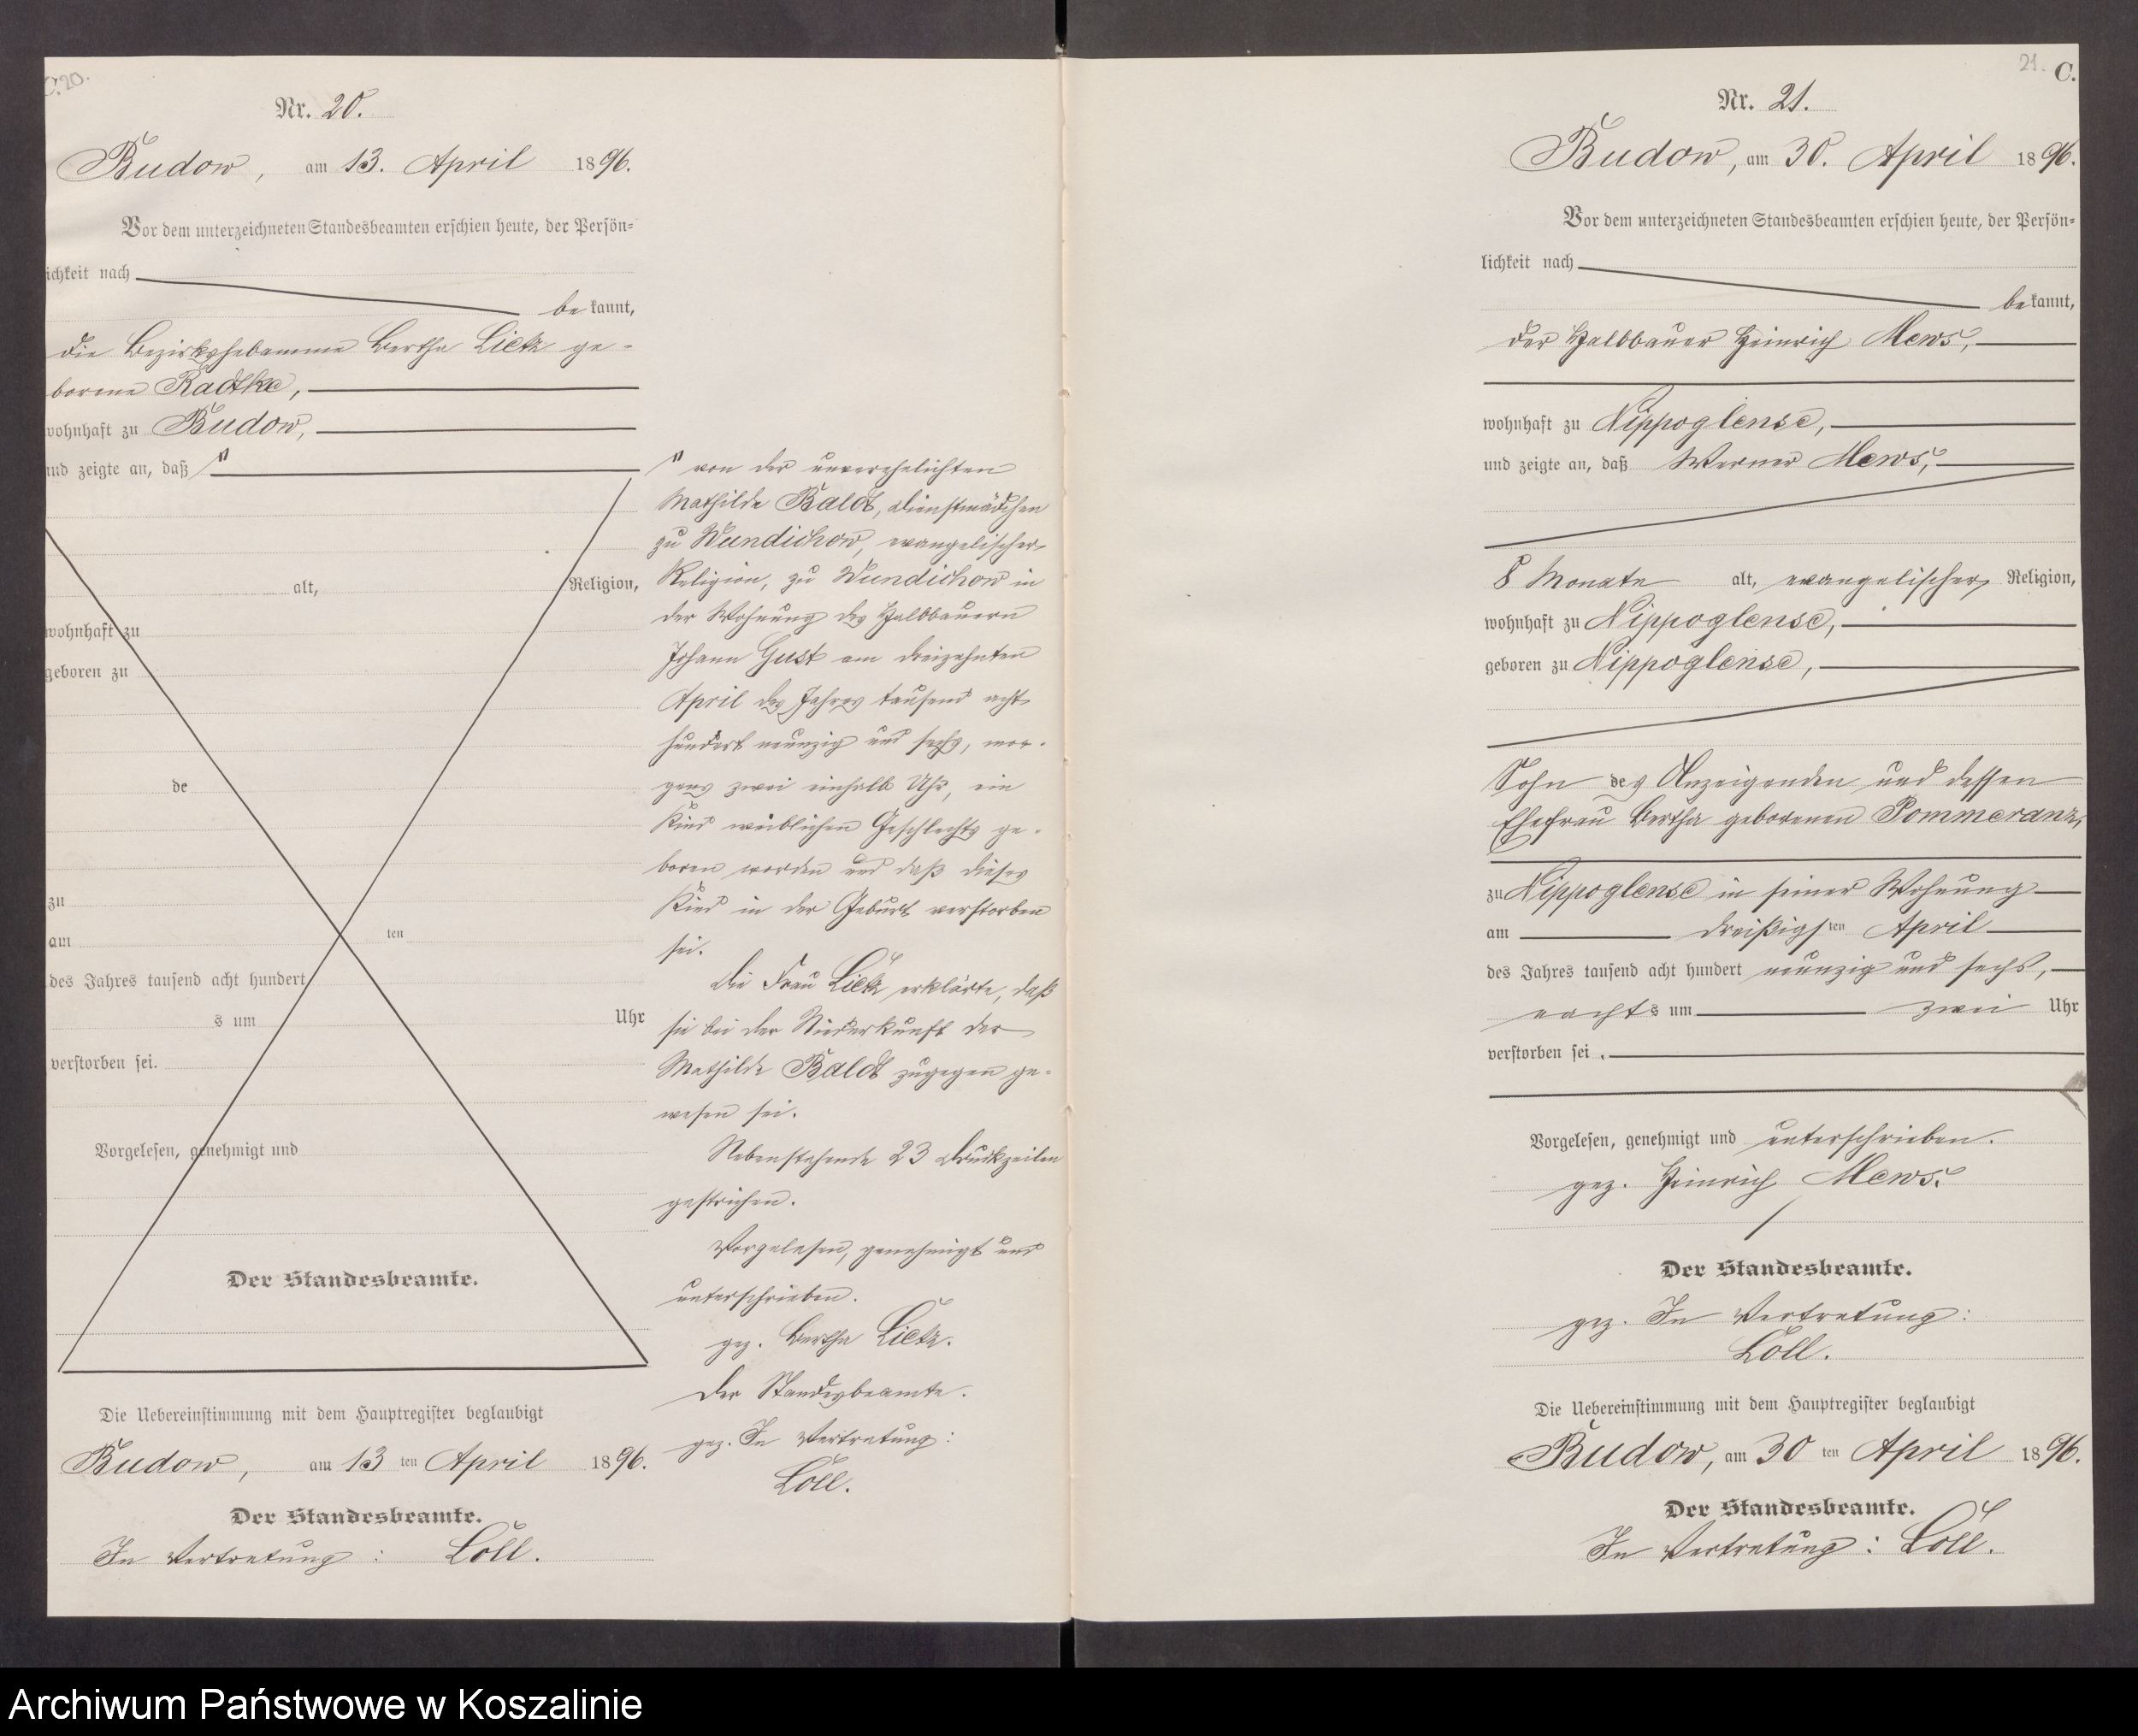 C. 20.
Nr. 20.
Budow, am 13. April 1896.
Vor dem unterzeichneten Standesbeamten erschien heute, der Persön-
lichkeit nach
be kannt,
die Bezirkshebamme Bertha Lietz ge-
borene Radtke,
wohnhaft zu Budow,
und zeigte an, daß
alt, Religion,
wohnhaft zu
geboren zu
de
zu
am ten
des Jahres tausend acht hundert
s um Uhr
verstorben sei.
Vorgelesen, genehmigt und
Der Standesbeamte.
Die Uebereinstimmung mit dem Hauptregister beglaubigt
Budow, am 13 ten April 1896.
Der Standesbeamte.
In Vertretung: Löll.
von der unverehelichten
Mathilde Baldt, Dienstmädchen
zu Wundichow, evangelischer
Religion, zu Wundichow in
der Wohnung des Halbbauern
Johann Gust am dreizehnten
April des Jahres tausend acht
hundert neunzig und sechs, mor-
gens zwei einhalb Uhr, ein
Kind weiblichen Geschlechts ge-
boren worden und daß dieses
Kind in der Geburt verstorben
sei.
Die Frau Lietz erklärte, daß
sie bei der Niederkunft der
Mathilde Baldt zugegen ge-
wesen sei.
Nebenstehende 23 Druckzeilen
gestrichen.
Vorgelesen, genehmigt und
unterschrieben.
gez. Bertha Lietz.
Der Standesbeamte.
gez. In Vertretung:
Löll.
21. C.
Nr. 21.
Budow, am 30. April 1896.
Vor dem unterzeichneten Standesbeamten erschien heute, der Persön-
lichkeit nach
be kannt,
der Halbbauer Heinrich Mews,
wohnhaft zu Nippoglense,
und zeigte an, daß Werner Mews,
8 Monate alt, evangelischer Religion,
wohnhaft zu Nippoglense,
geboren zu Nippoglense,
Sohn des Anzeigenden und dessen
Ehefrau Bertha geborenen Pommeranz,
zu Nippoglense in seiner Wohnung
am dreißigsten April
des Jahres tausend acht hundert neunzig und sechs,
nachts um zwei Uhr
verstorben sei.
Vorgelesen, genehmigt und unterschrieben.
gez. Heinrich Mews.
Der Standesbeamte.
gez. In Vertretung:
Löll.
Die Uebereinstimmung mit dem Hauptregister beglaubigt
Budow, am 30 ten April 1896.
Der Standesbeamte.
In Vertretung: Löll.
Archiwum Państwowe w Koszalinie